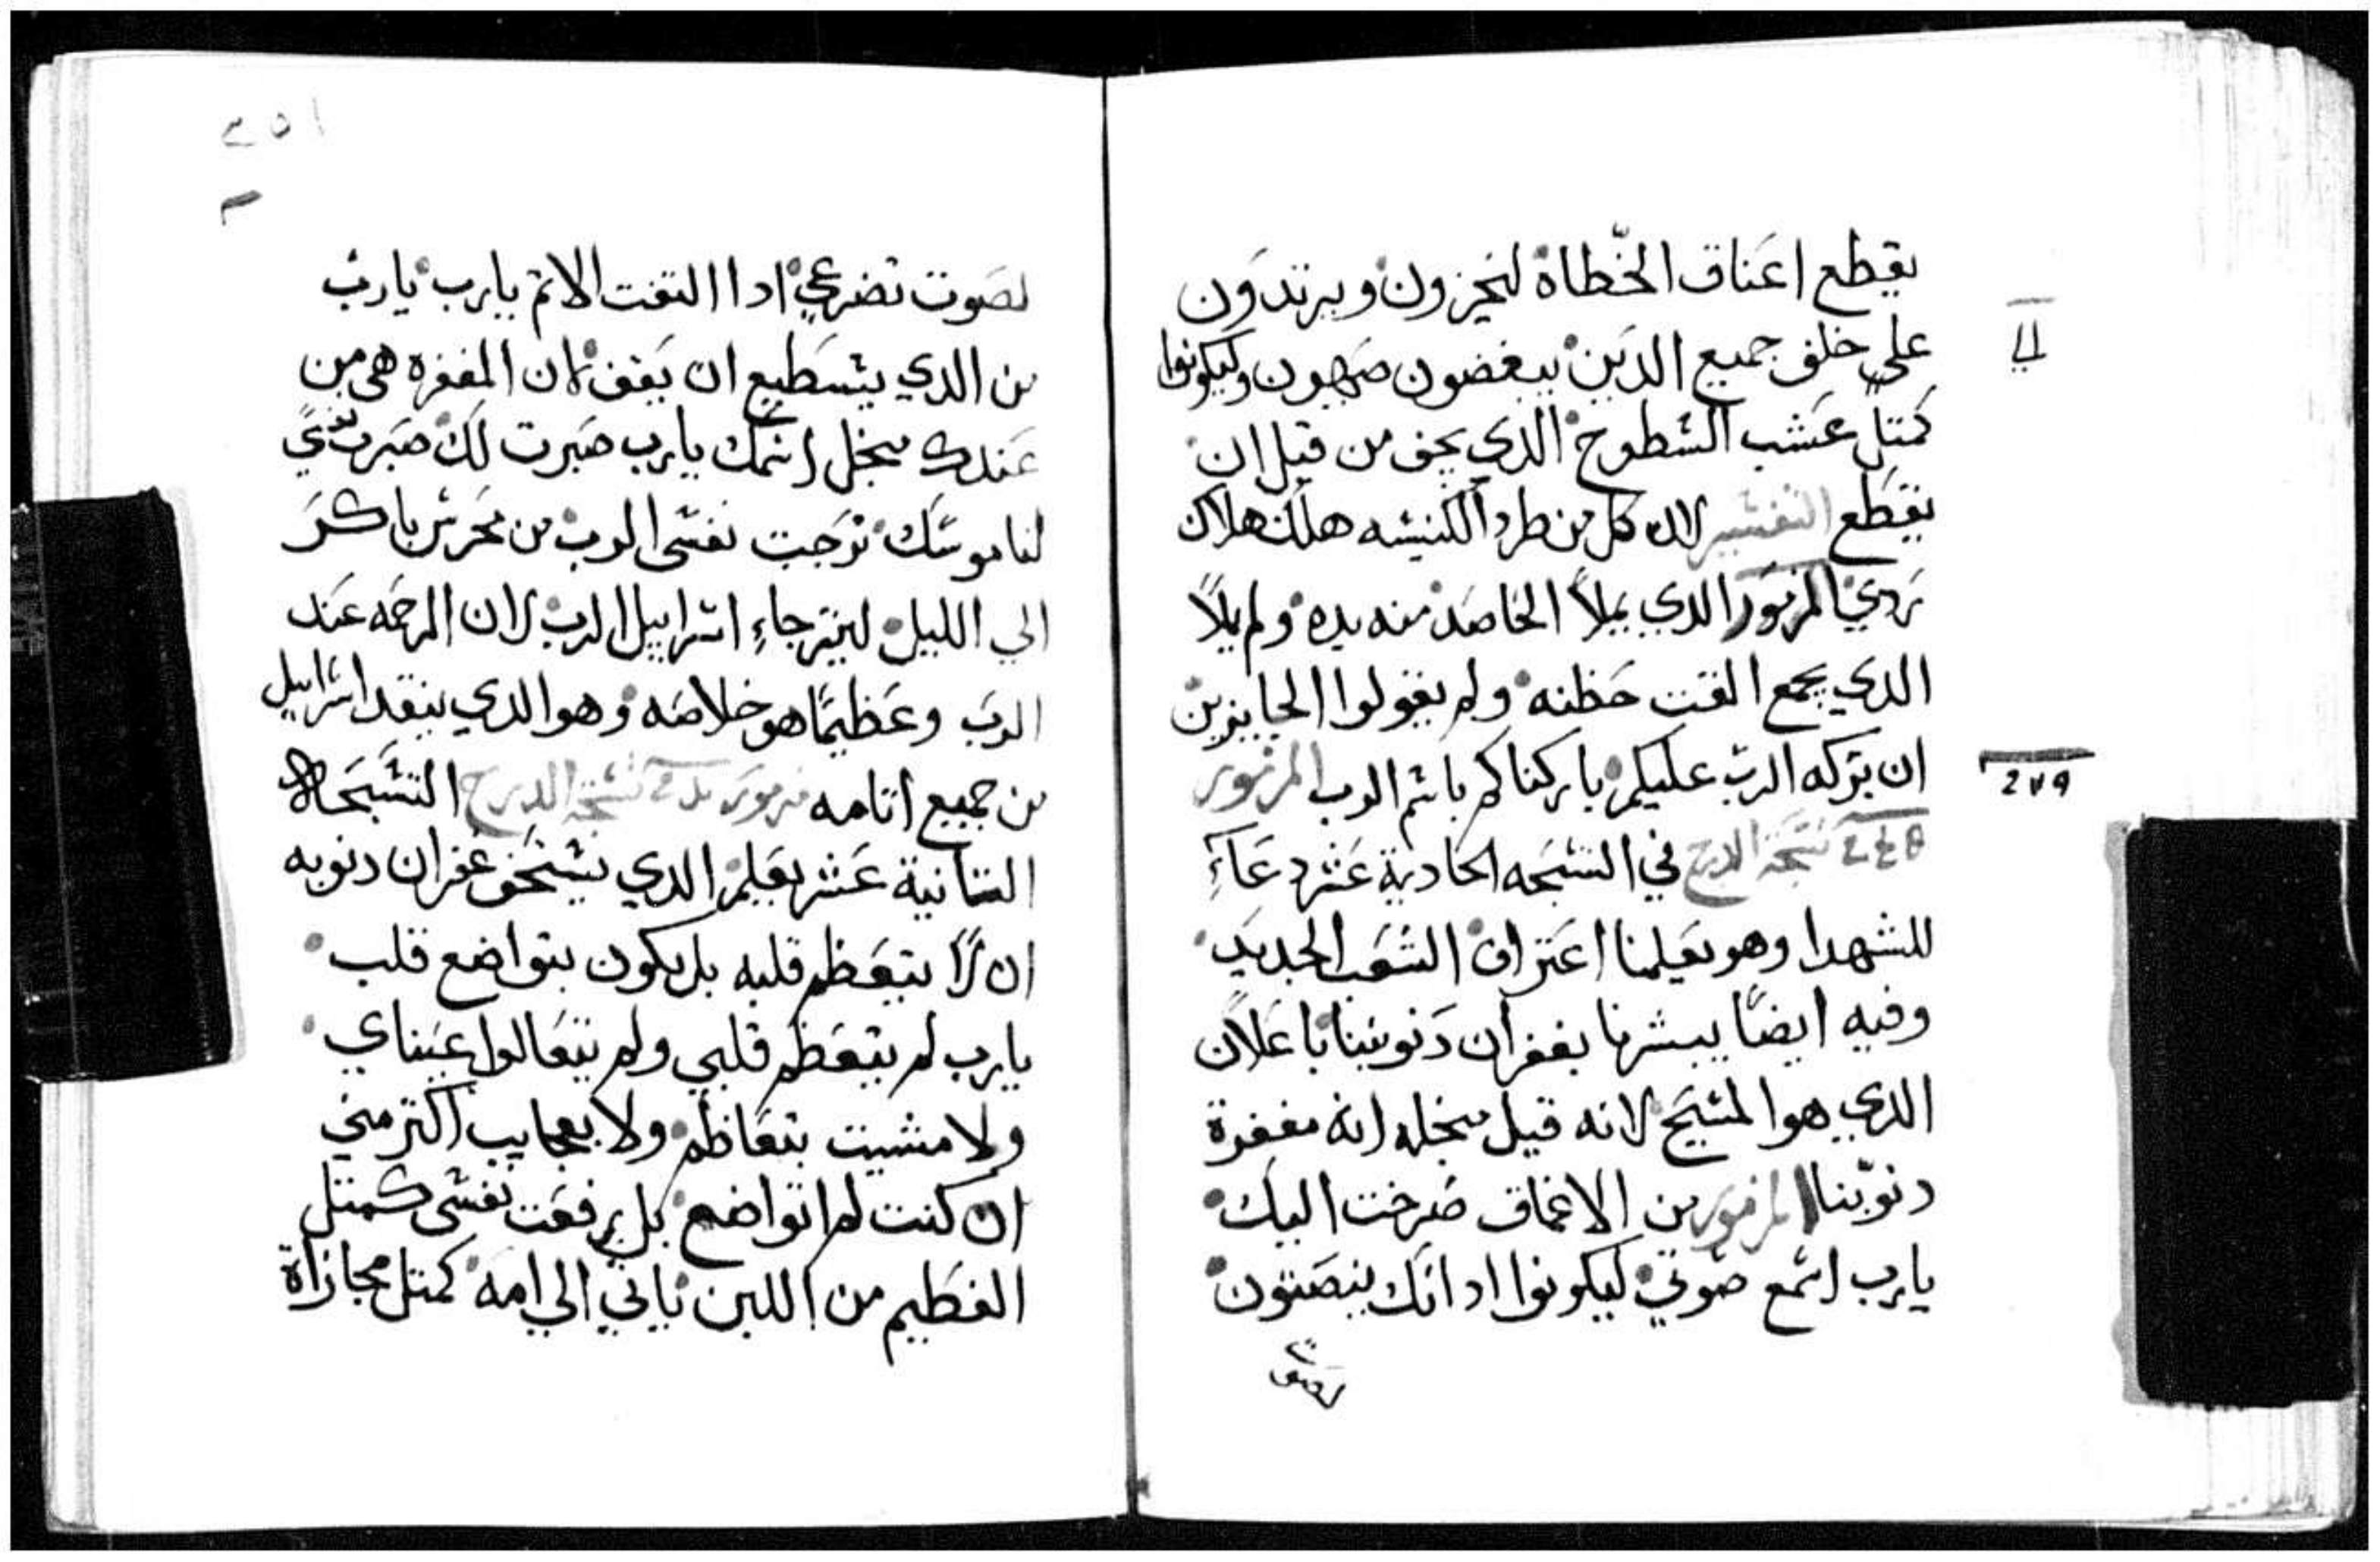 يقطع اعناق الخطاة ليخزون ويرتدون
علي خلف جميع الدين يبغضون صهيون وليكونوا
كمتل عشب السطوح الدي يجف من قبل ان
يقطع التفسير لان كل من طرد الكنيسه هلك هلاك
ردي المزمور الدي يملأ الحاصد منه يده ولم يملأ
الدي يجمع الفت حظنه ولم يقولوا الجايزين
ان بركه الرب عليكم باركناكم باسم الرب المزمور
نسخة الدرج في التسبحه الحادية عشر دعاء
للشهدا وهو يعلمنا اعتراف الشعب الجديد
وفيه ايضًا يبشرنا بغفران دنوبنا باعلان
الدي هو المسيح لانه قيل من اجله انه مغفرة
دنوبنا المزمور من الاعماق صرخت اليك
يارب اسمع صوتي ليكونوا ادانك ينصتون
٢٥١
لصوت تضرعي ادا التفت الاتم يارب يارب
من الدي يستطيع ان يقف لان المغفره هي من
عندك من اجل اسمك يارب صبرت لك صبرت نفسي
لناموسك ترجت نفسي الرب من محرس باكر
الي الليل ليترجاء اسراييل الرب لان الرحمه عند
الرب وعظيمًا هو خلاصه وهو الدي ينقد اسراييل
من جميع اتامه مزمور تسبحة الدرج التسبحاه
التانية عشر يعلم الدي يستحق غفران دنوبه
ان لا يتعظم قلبه بل يكون بتواضع قلب
يارب لم يتعظم قلبي ولم تتعالوا عيناي
ولا مشيت بتعاظم ولا بعجايب اكتر مني
ان كنت لم اتواضع بل رفعت نفسي كمتل
الفطيم من اللبن ياتي الي امه كمتل مجازاة